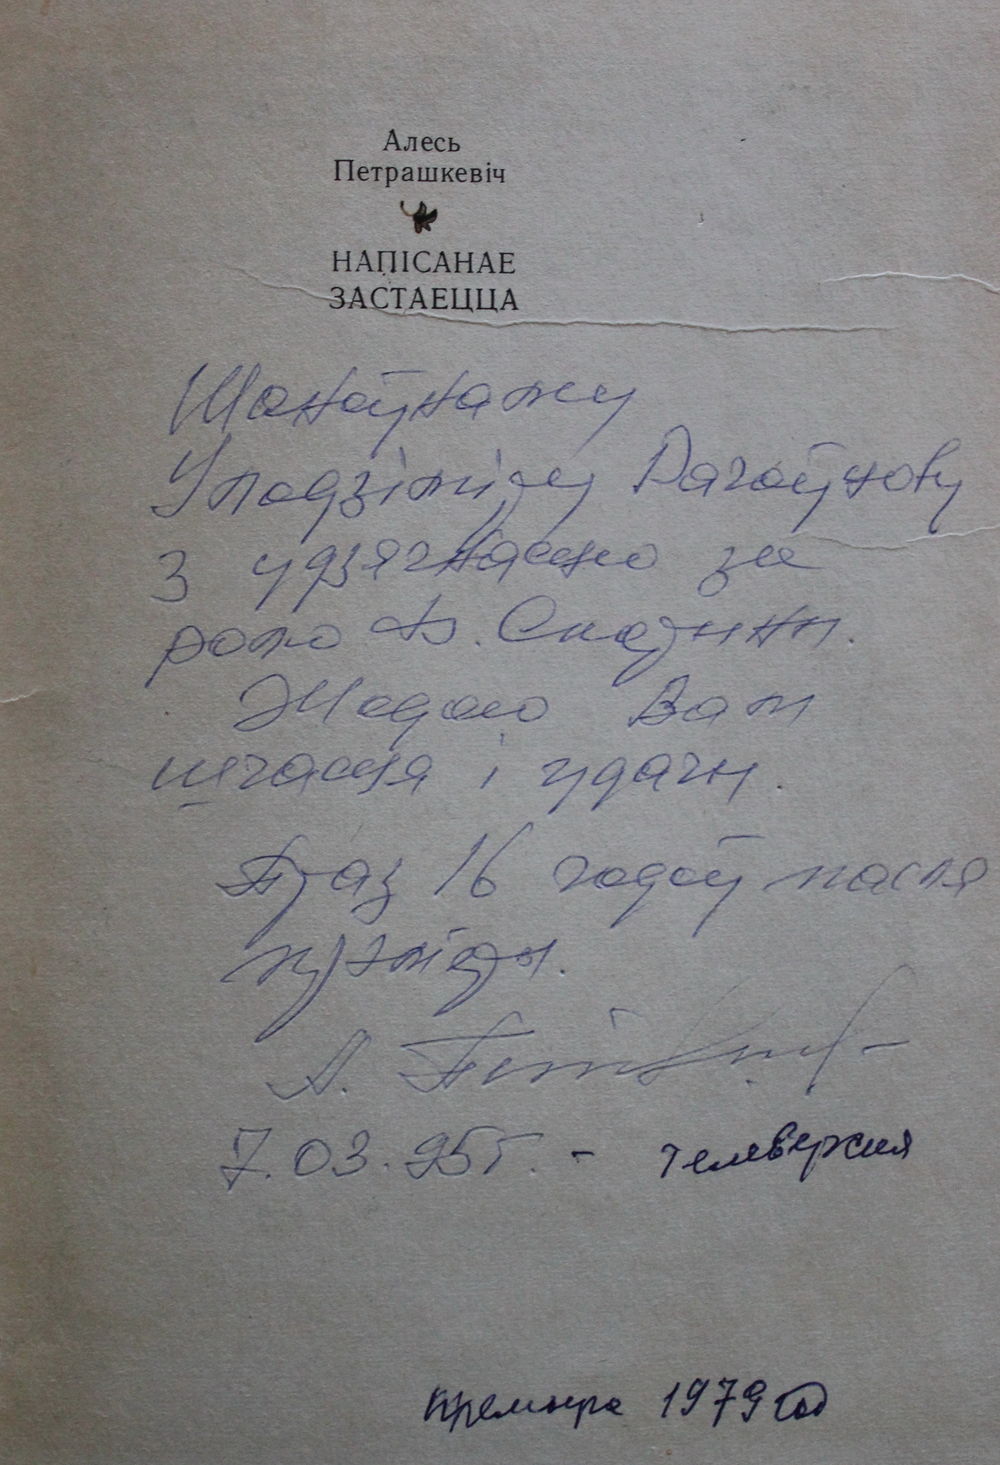 Алесь
Петрашкевіч
НАПІСАНАЕ
ЗАСТАЕЦЦА
Шаноўнаму
Уладзіміру Рагаўцову
З удзячнасцю за
ролю Ф. Скарыны.
Жадаю Вам
шчасця і удачы.
Праз 16 гадоў пасля
прэм'еры.
А. Петрашкевіч
7.03.95 г. - телеверсия
премьера 1979 год